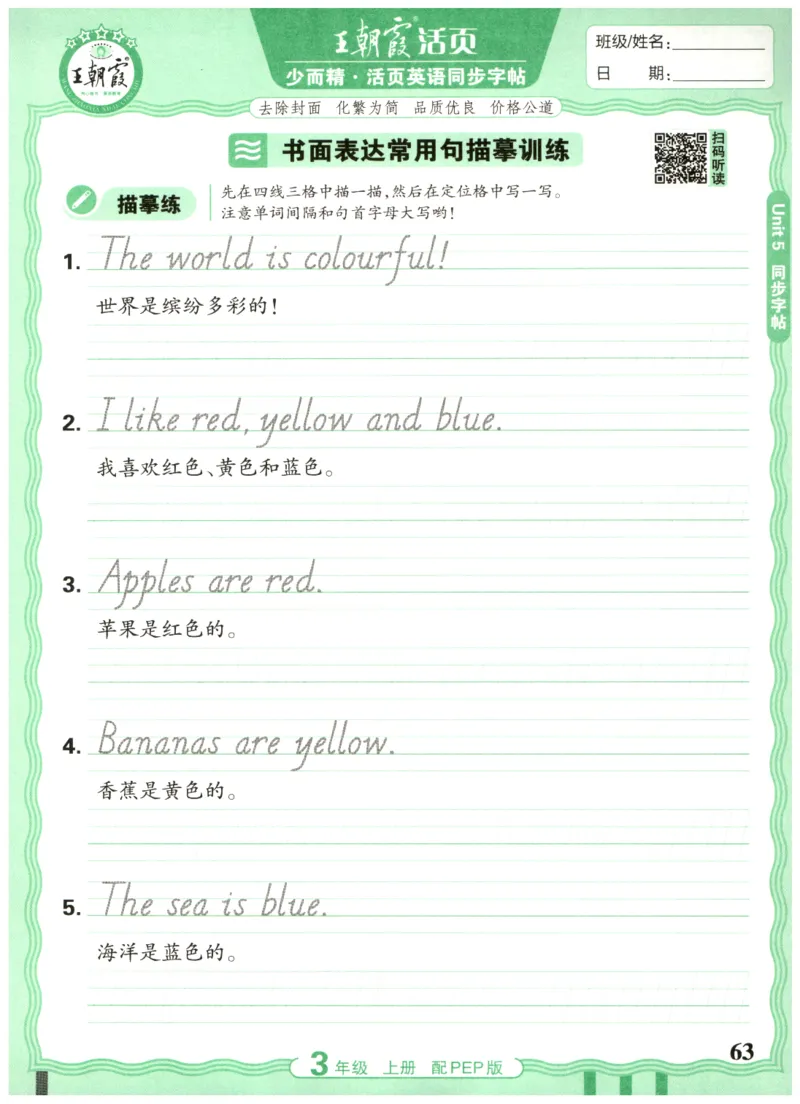 王朝霞
王朝霞活页
少而精·活页英语同步字帖
班级/姓名:
日 期:
去除封面 化繁为简 品质优良 价格公道
书面表达常用句描摹训练
扫码听读
描摹练
先在四线三格中描一描,然后在定位格中写一写。
注意单词间隔和句首字母大写哟!
Unit 5 同步字帖
1. The world is colourful!
世界是缤纷多彩的!
2. I like red, yellow and blue.
我喜欢红色、黄色和蓝色。
3. Apples are red.
苹果是红色的。
4. Bananas are yellow.
香蕉是黄色的。
5. The sea is blue.
海洋是蓝色的。
63
3年级 上册 配PEP版